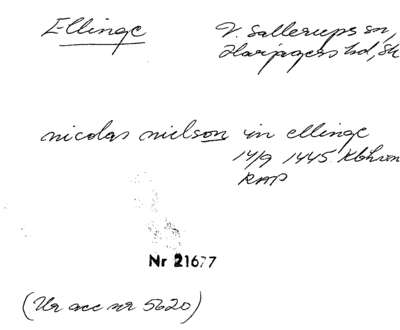 Ellinge
V. Sallerups sn,
Harjagers hd, Sk
nicolas nielson in ellinge
14/9 1445 Kbhvn
RAP
Nr 21677
(Ur acc nr 5620)